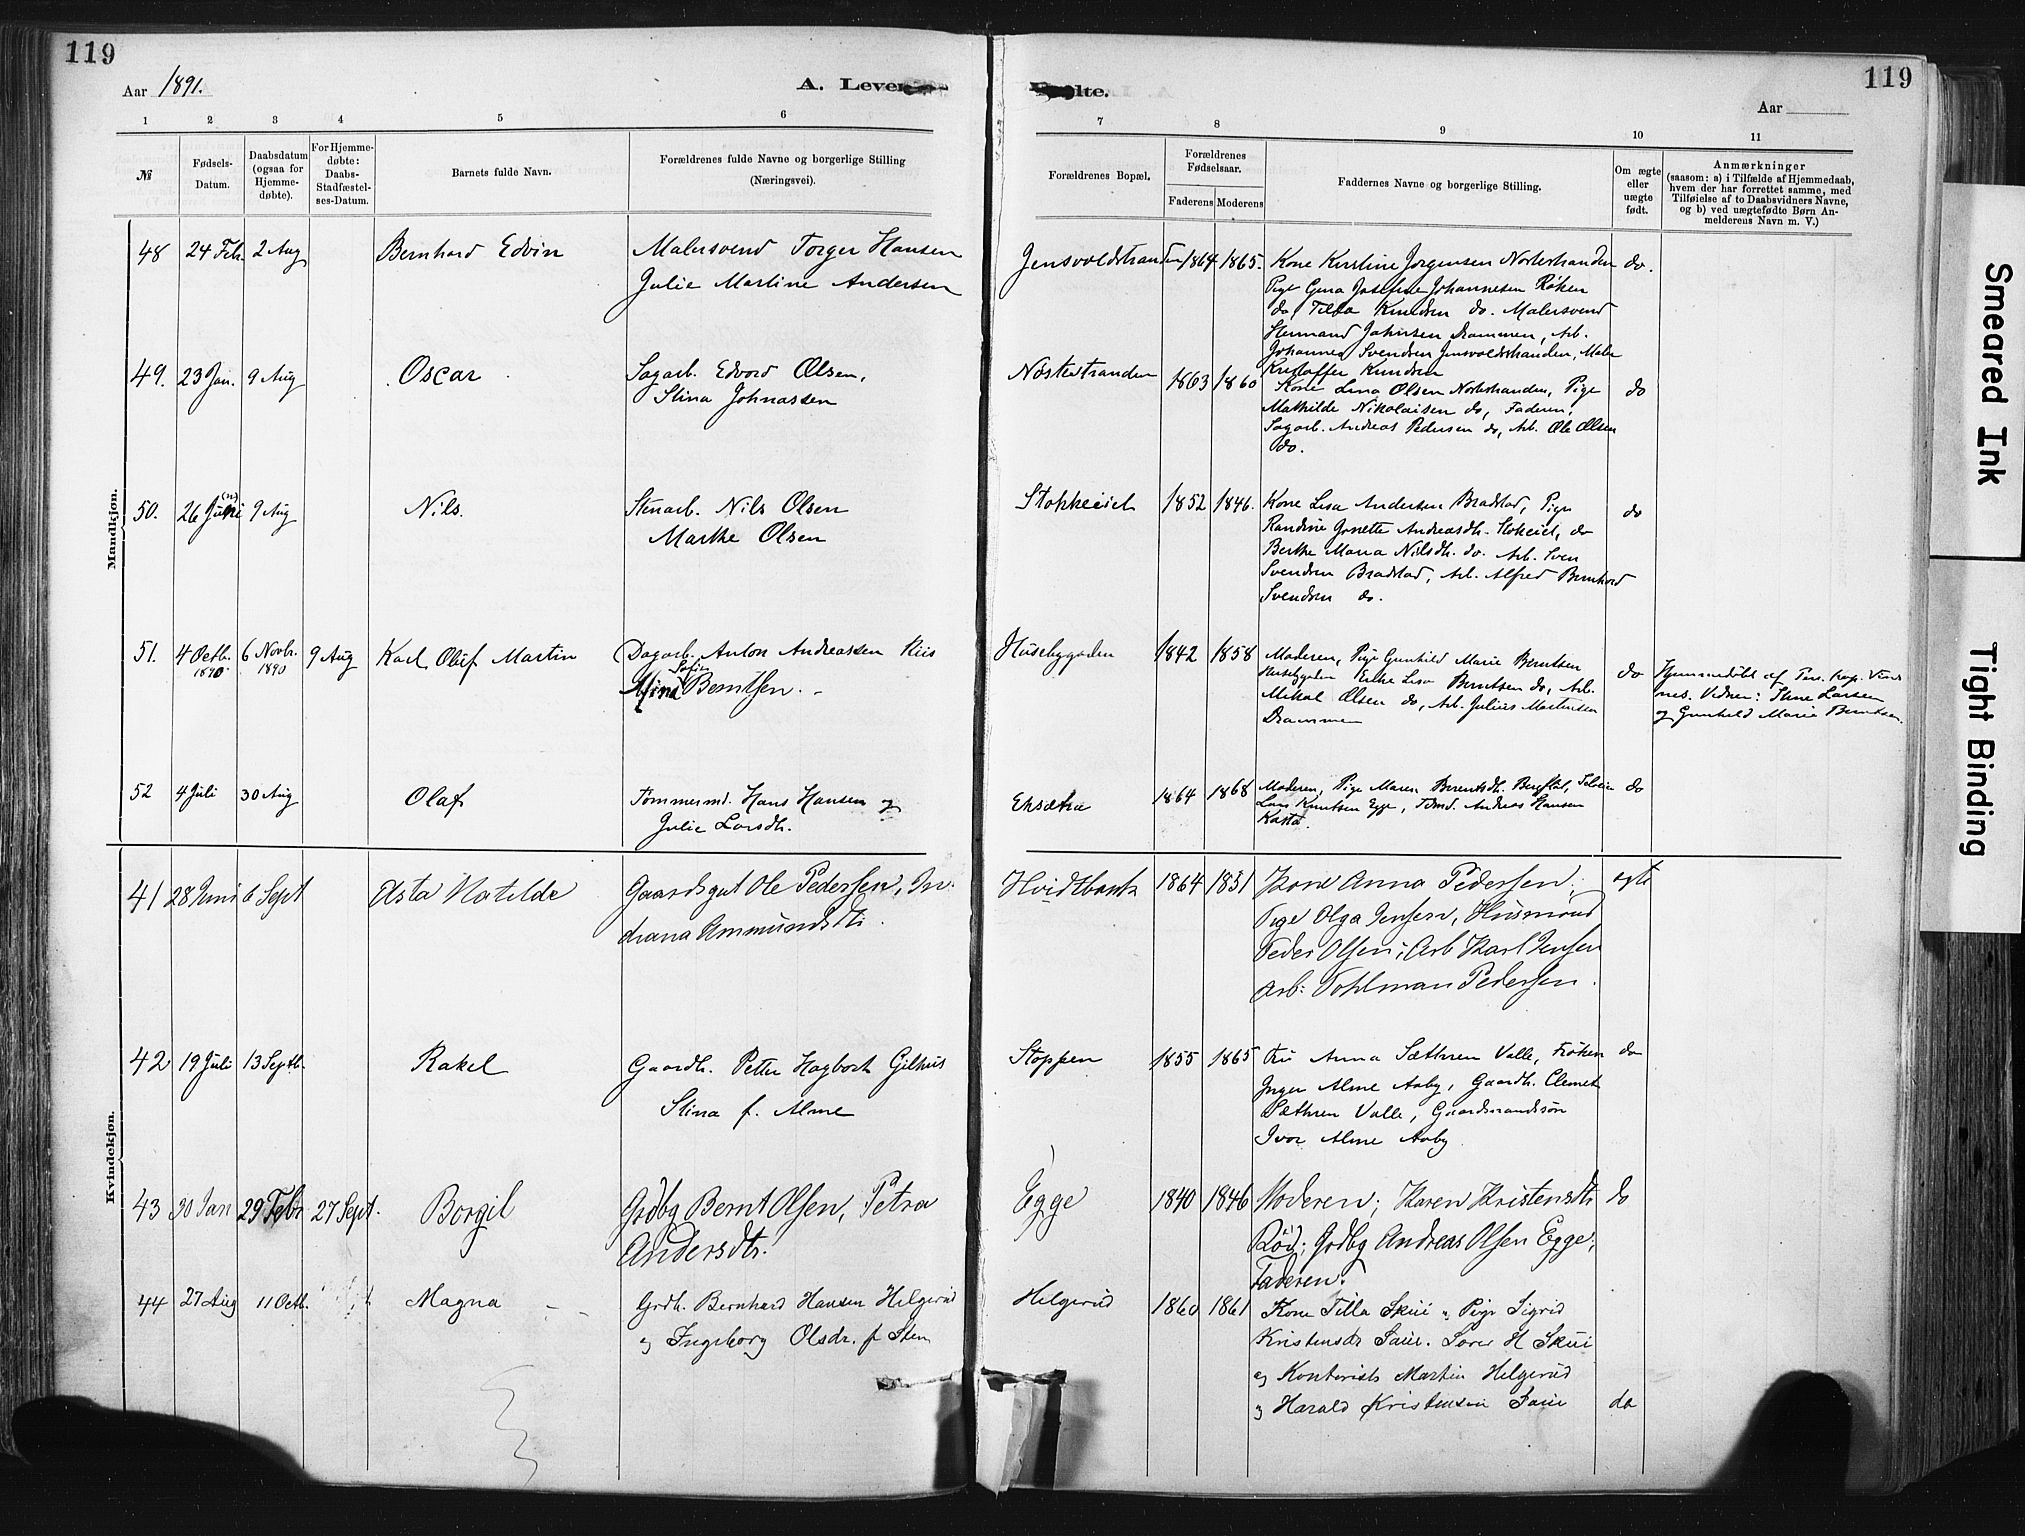 119
119
Aar 1891.
A. Leven
dte.
Aar
1 2 3 4 5 6 7 8 9 10 11
№
Fødsels-
Datum.
Daabsdatum
(ogsaa for
Hjemme-
døbte).
For Hjemme-
døbte:
Daabs-
Stadfæstel-
ses-Datum.
Barnets fulde Navn.
Forældrenes fulde Navne og borgerlige Stilling
(Næringsvei).
Forældrenes Bopæl.
Forældrenes
Fødselsaar.
Faderens Moderens
Faddernes Navne og borgerlige Stilling.
Om ægte
eller
uægte
født.
Anmærkninger
(saasom: a) i Tilfælde af Hjemmedaab,
hvem der har forrettet samme, med
Tilføielse af to Daabsvidners Navne,
og b) ved uægtefødte Børn An-
melderens Navn m. V.)
Mandkjøn.
48 24 Feb. 2 Aug Bernhard Edvin
Malersvend Torger Hansen
Julie Martine Andersen
Jensvoldstranden 1864 1865.
Kone Kirstine Jørgensen Nøstestranden do.
Pige Gina Josefine Johannesen Røken
do Tilba Knudsen do. Malersvend
Hermand Johnsen Drammen, Arb.
Johannes Svendsen Jensvoldstranden, Maler
Kristoffer Knudsen
49. 23 Jan. 9 Aug Oscar
Sagarb. Edvard Olsen,
Stina Johnassen
Nøstestranden 1863 1860
Kone Lina Olsen Nøstestranden, Pige do
Mathilde Nikolaisen do, Faderen,
Sagarb. Andreas Pedersen do, Arb. Ole Olsen
do.
50. 26 Juni (n) 9 Aug Nils.
Stenarb. Nils Olsen
Marthe Olsen
Stokkeeiet 1852 1846.
Kone Lisa Andersen Bradstad, Pige do
Randine Jonette Andreasdh. Stokeiet, do
Berthe Maria Nilsdh. do. Arb. Sven
Svendsen Bradstad, Arb. Alfred Bernhard
Svendsen do.
51. 4 Octb. 1890. 6 Novbr. 1890 9 Aug Karl Oluf Martin
Dagarb. Anton Andreassen Riis
Mina Sofie Berntsen.
Husebygaden 1842 1858
Moderen, Pige Gunhild Marie Berntsen do
Husebygaden Enke Lisa Berntsen do, Arb.
Mikal Olsen do, Arb. Julius Martinsen
Drammen
Hjemmedøbt af Pers. Kap.
Vidner: Stine Larsen
og Gunhild Marie Berntsen.
52 4 Juli 30 Aug Olaf
Tømmermd. Hans Hansen og
Julie Larsdh.
Eksætra 1864 1868
Moderen, Pige Maren Berentsdh. Bergflot, do
Lars Knutsen Egge, Tømd. Andreas Hansen
Kasta.
Kvindekjøn.
41 28 Juni 6 Sept Asta Matilde
Gaardsgut Ole Pedersen, In-
diana Ammundsdtr.
Hvidtbank 1864 1831
Kone Anna Pedersen; egte
Pige Olga Jensen, Husmand
Peder Olsen; Arb Karl Jensen
Arb: Pohlman Pedersen.
42 19 Juli 13 Septb. Rakel
Gaardb. Petter Hagbart Gilhus
Stina f. Alme
Stoppen 1855 1865
Fru Anna Sæthren Valle, Frøken do
Inger Alme Aaby, Gaardb. Clemet
Sæthren Valle, Gaardmandssøn
Ivar Alme Aaby.
43 30 Jan 29 Febr 27 Sept. Borgil
Grdbg Bernt Olsen, Petra
Andersdtr.
Egge 1840 1846
Moderen; Karen Kristensdtr do
Rød; Grdbg Andreas Olsen Egge;
Faderen.
44 27 Aug 11 Octb. Magna
Grdb. Bernhard Hansen Helgerud
og Ingeborg Olsdr. f. Sten
Helgerud 1860 1861
Kone Tilla Skui, Pige Sigrid
Kristensdr Saue. Lorer H Skui
og Kontorist Martin Helgerud
og Harald Kristensen Saue do
Smeared Ink
Tight Binding